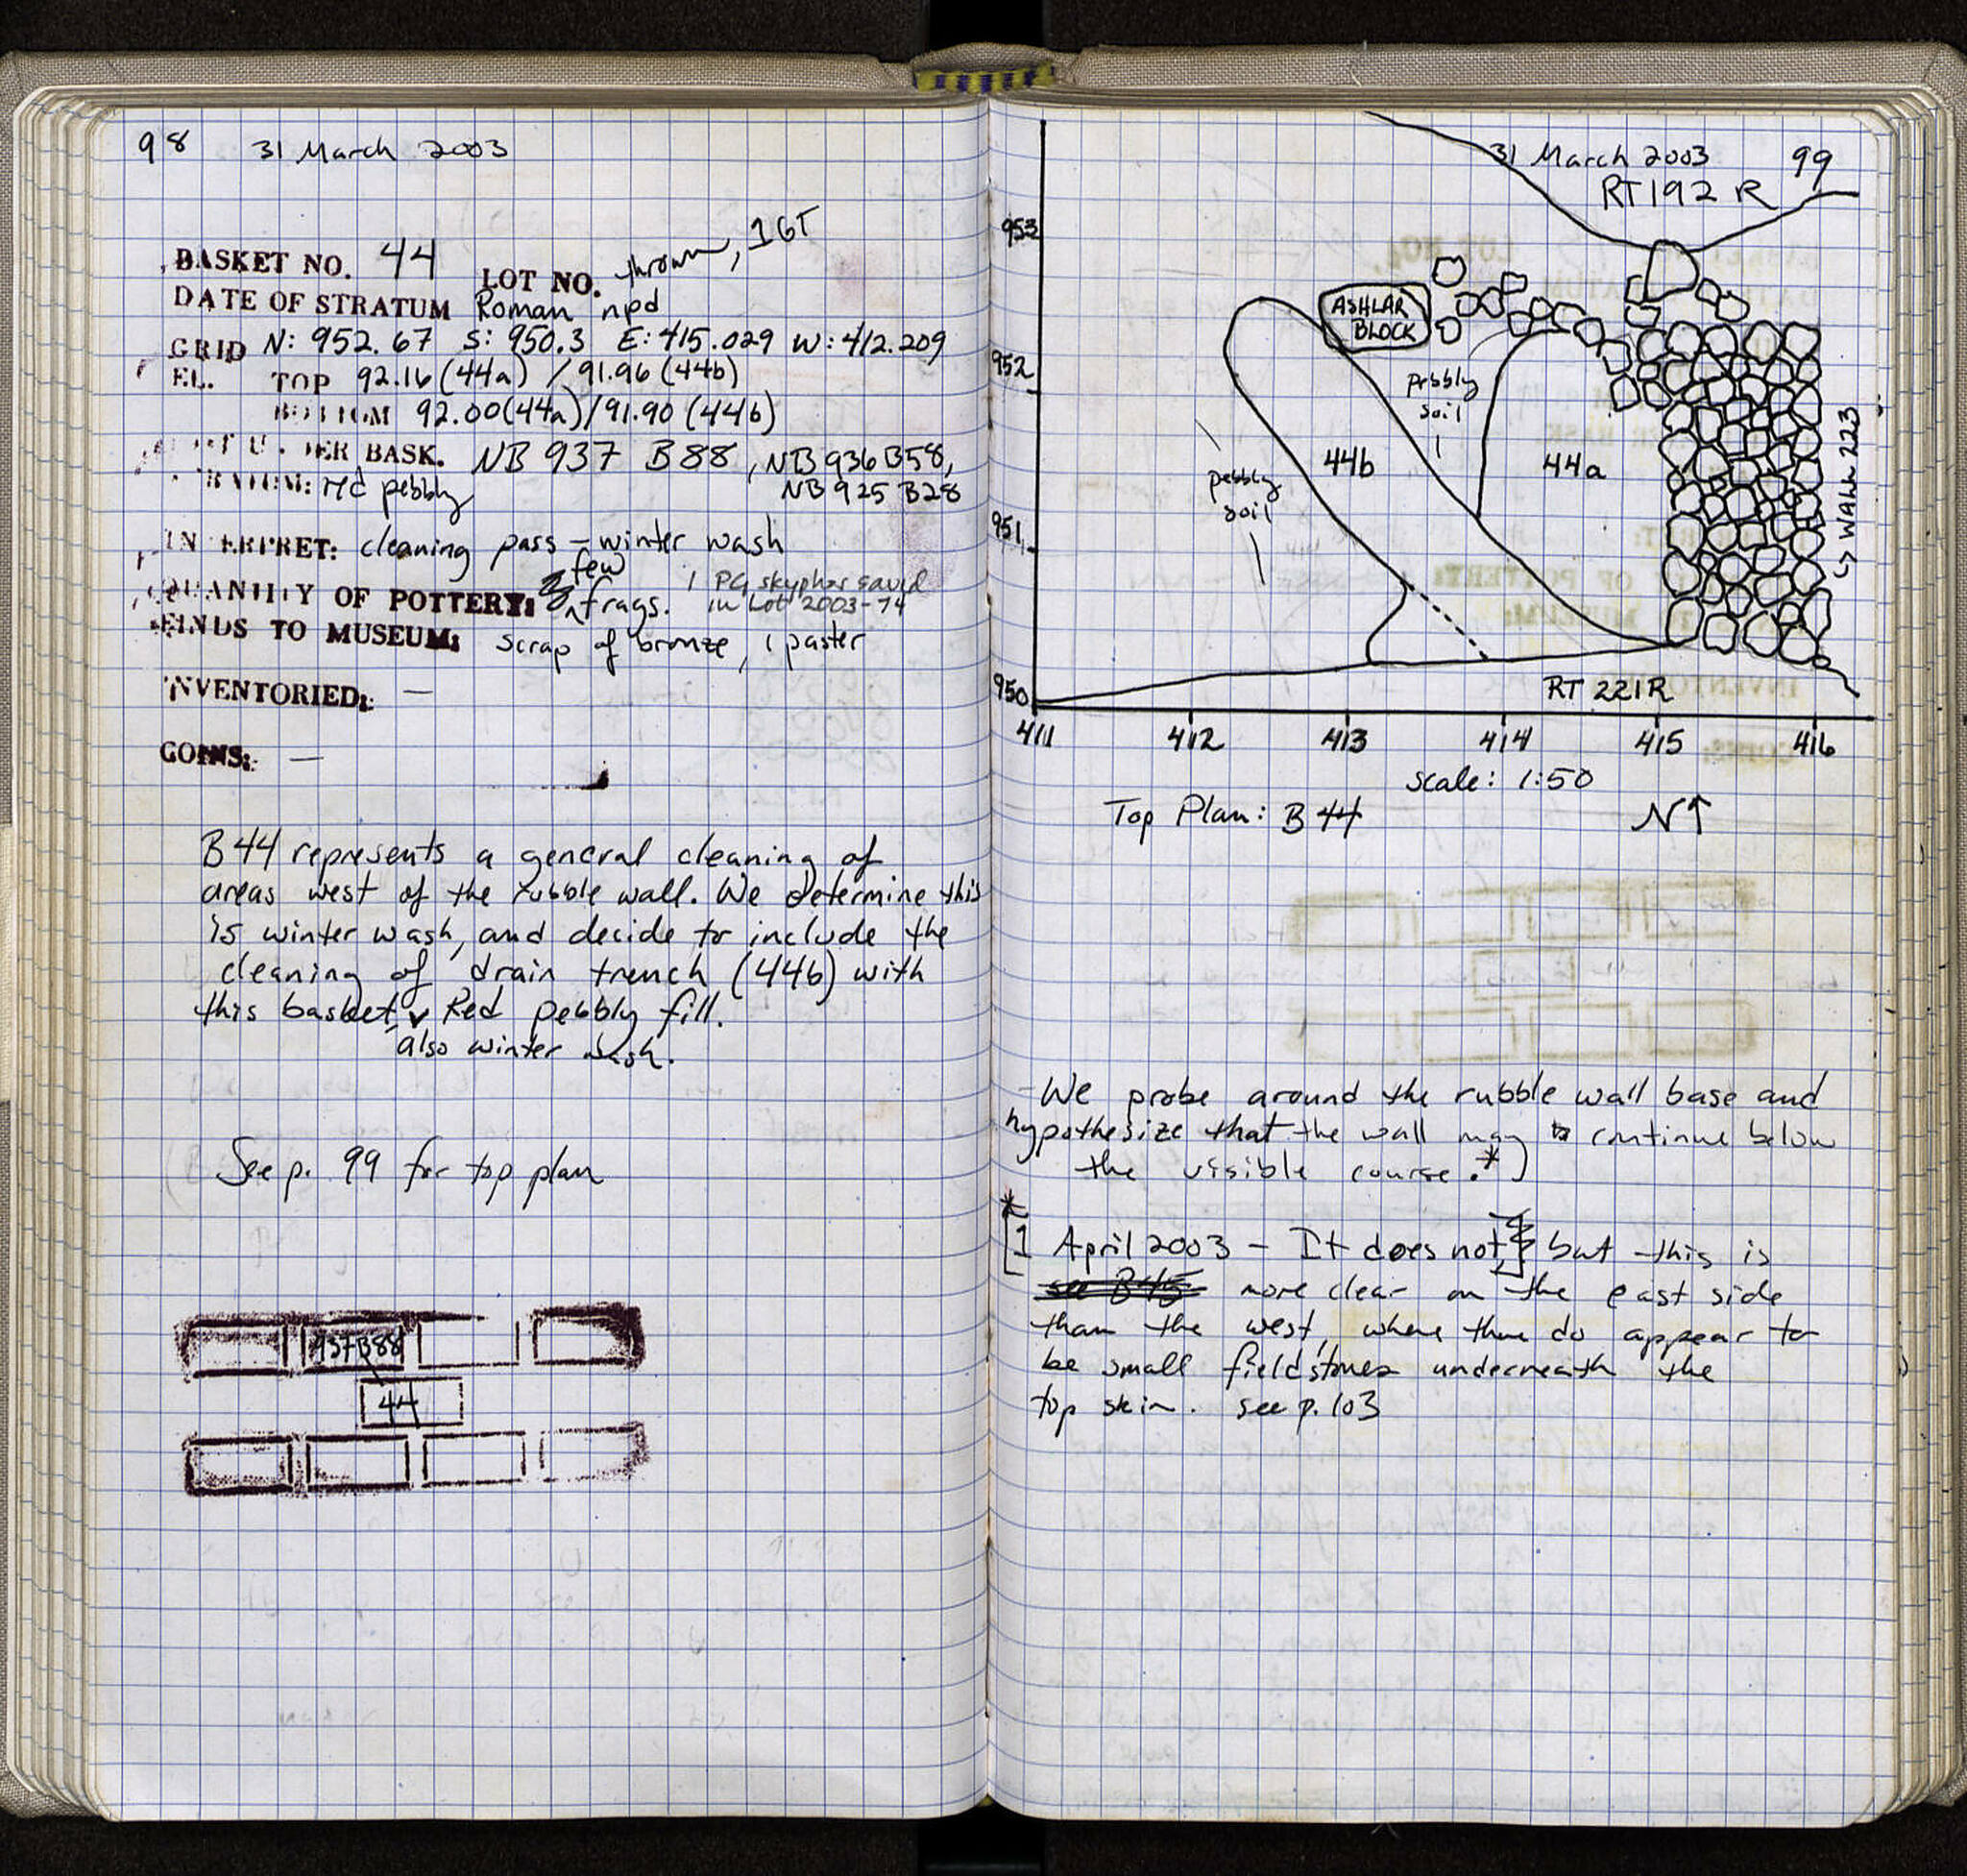 98 31 March 2003
BASKET NO. 44 LOT NO. thrown, 1GT
DATE OF STRATUM Roman npd
GRID N: 952.67 S: 950.3 E: 415.029 W: 412.209
EL. TOP 92.16 (44a) / 91.96 (44b)
BOTTOM 92.00 (44a) / 91.90 (44b)
BASK. NB 937 B88, NB 936 B58,
NB 925 B28
red pebbly
INTERPRET: cleaning pass – winter wash
few
QUANTITY OF POTTERY: frags. 1 PG skyphos saved
in Lot 2003-74
FINDS TO MUSEUM: scrap of bronze, 1 paster
INVENTORIED: —
COINS: —
B44 represents a general cleaning of
areas west of the rubble wall. We determine this
is winter wash, and decide to include the
cleaning of drain trench (44b) with
this basket, Red pebbly fill.
also winter wash.
See p. 99 for top plan
937B88
44
31 March 2003 99
RT192 R
953
952
951
950
ASHLAR
BLOCK
pebbly
soil
44b
44a
pebbly
soil
↳ WALL 223
RT 221R
411 412 413 414 415 416
scale: 1:50
Top Plan: B44 N↑
– We probe around the rubble wall base and
hypothesize that the wall may continue below
the visible course.*)
*
[1 April 2003 – It does not,] but this is
see B45 more clear on the east side
than the west, where there do appear to
be small fieldstones underneath the
top skin. see p. 103